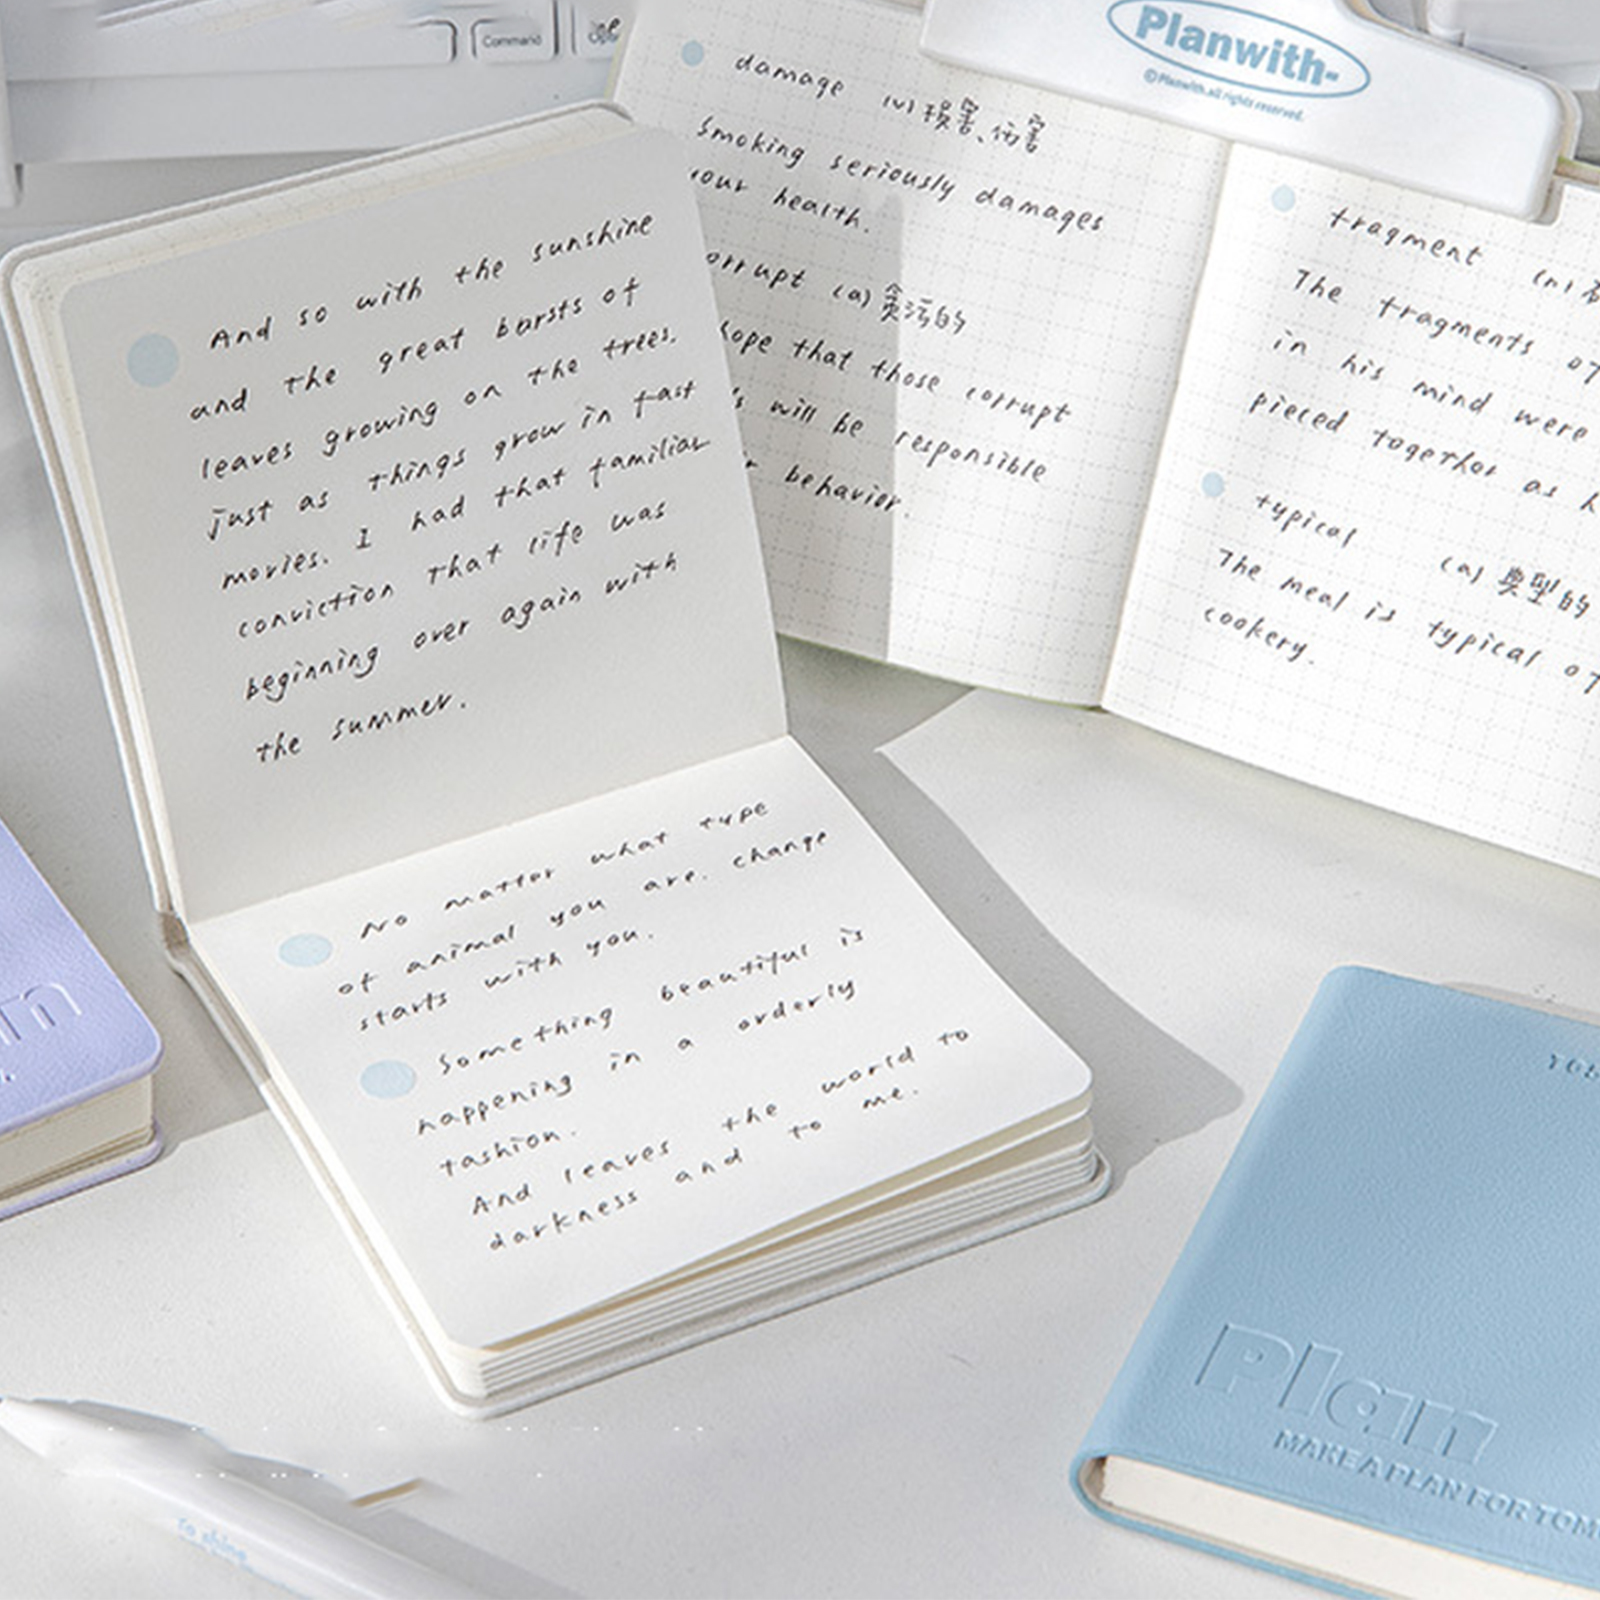 Command
And so with the sunshine
and the great barsts of
leaves growing on the trees.
just as things grow in fast
movies. I had that familiar
conviction that life was
beginning over again with
the summer.
No matter what type
of animal you are. change
starts with you.
Something beautiful is
happening in a orderly
fashion.
And leaves the world to
darkness and to me.
Planwith-
©Planwith.all rights reserved.
damage (v) 損害、傷害
Smoking seriously damages
your health.
orrupt (a) 貪污的
hope that those corrupt
's will be responsible
r behavior.
fragment (n)
The fragments of
in his mind were
pieced together as h
typical (a) 典型的
The meal is typical of
cookery.
an
Plan
MAKE A PLAN FOR TOM
To shine